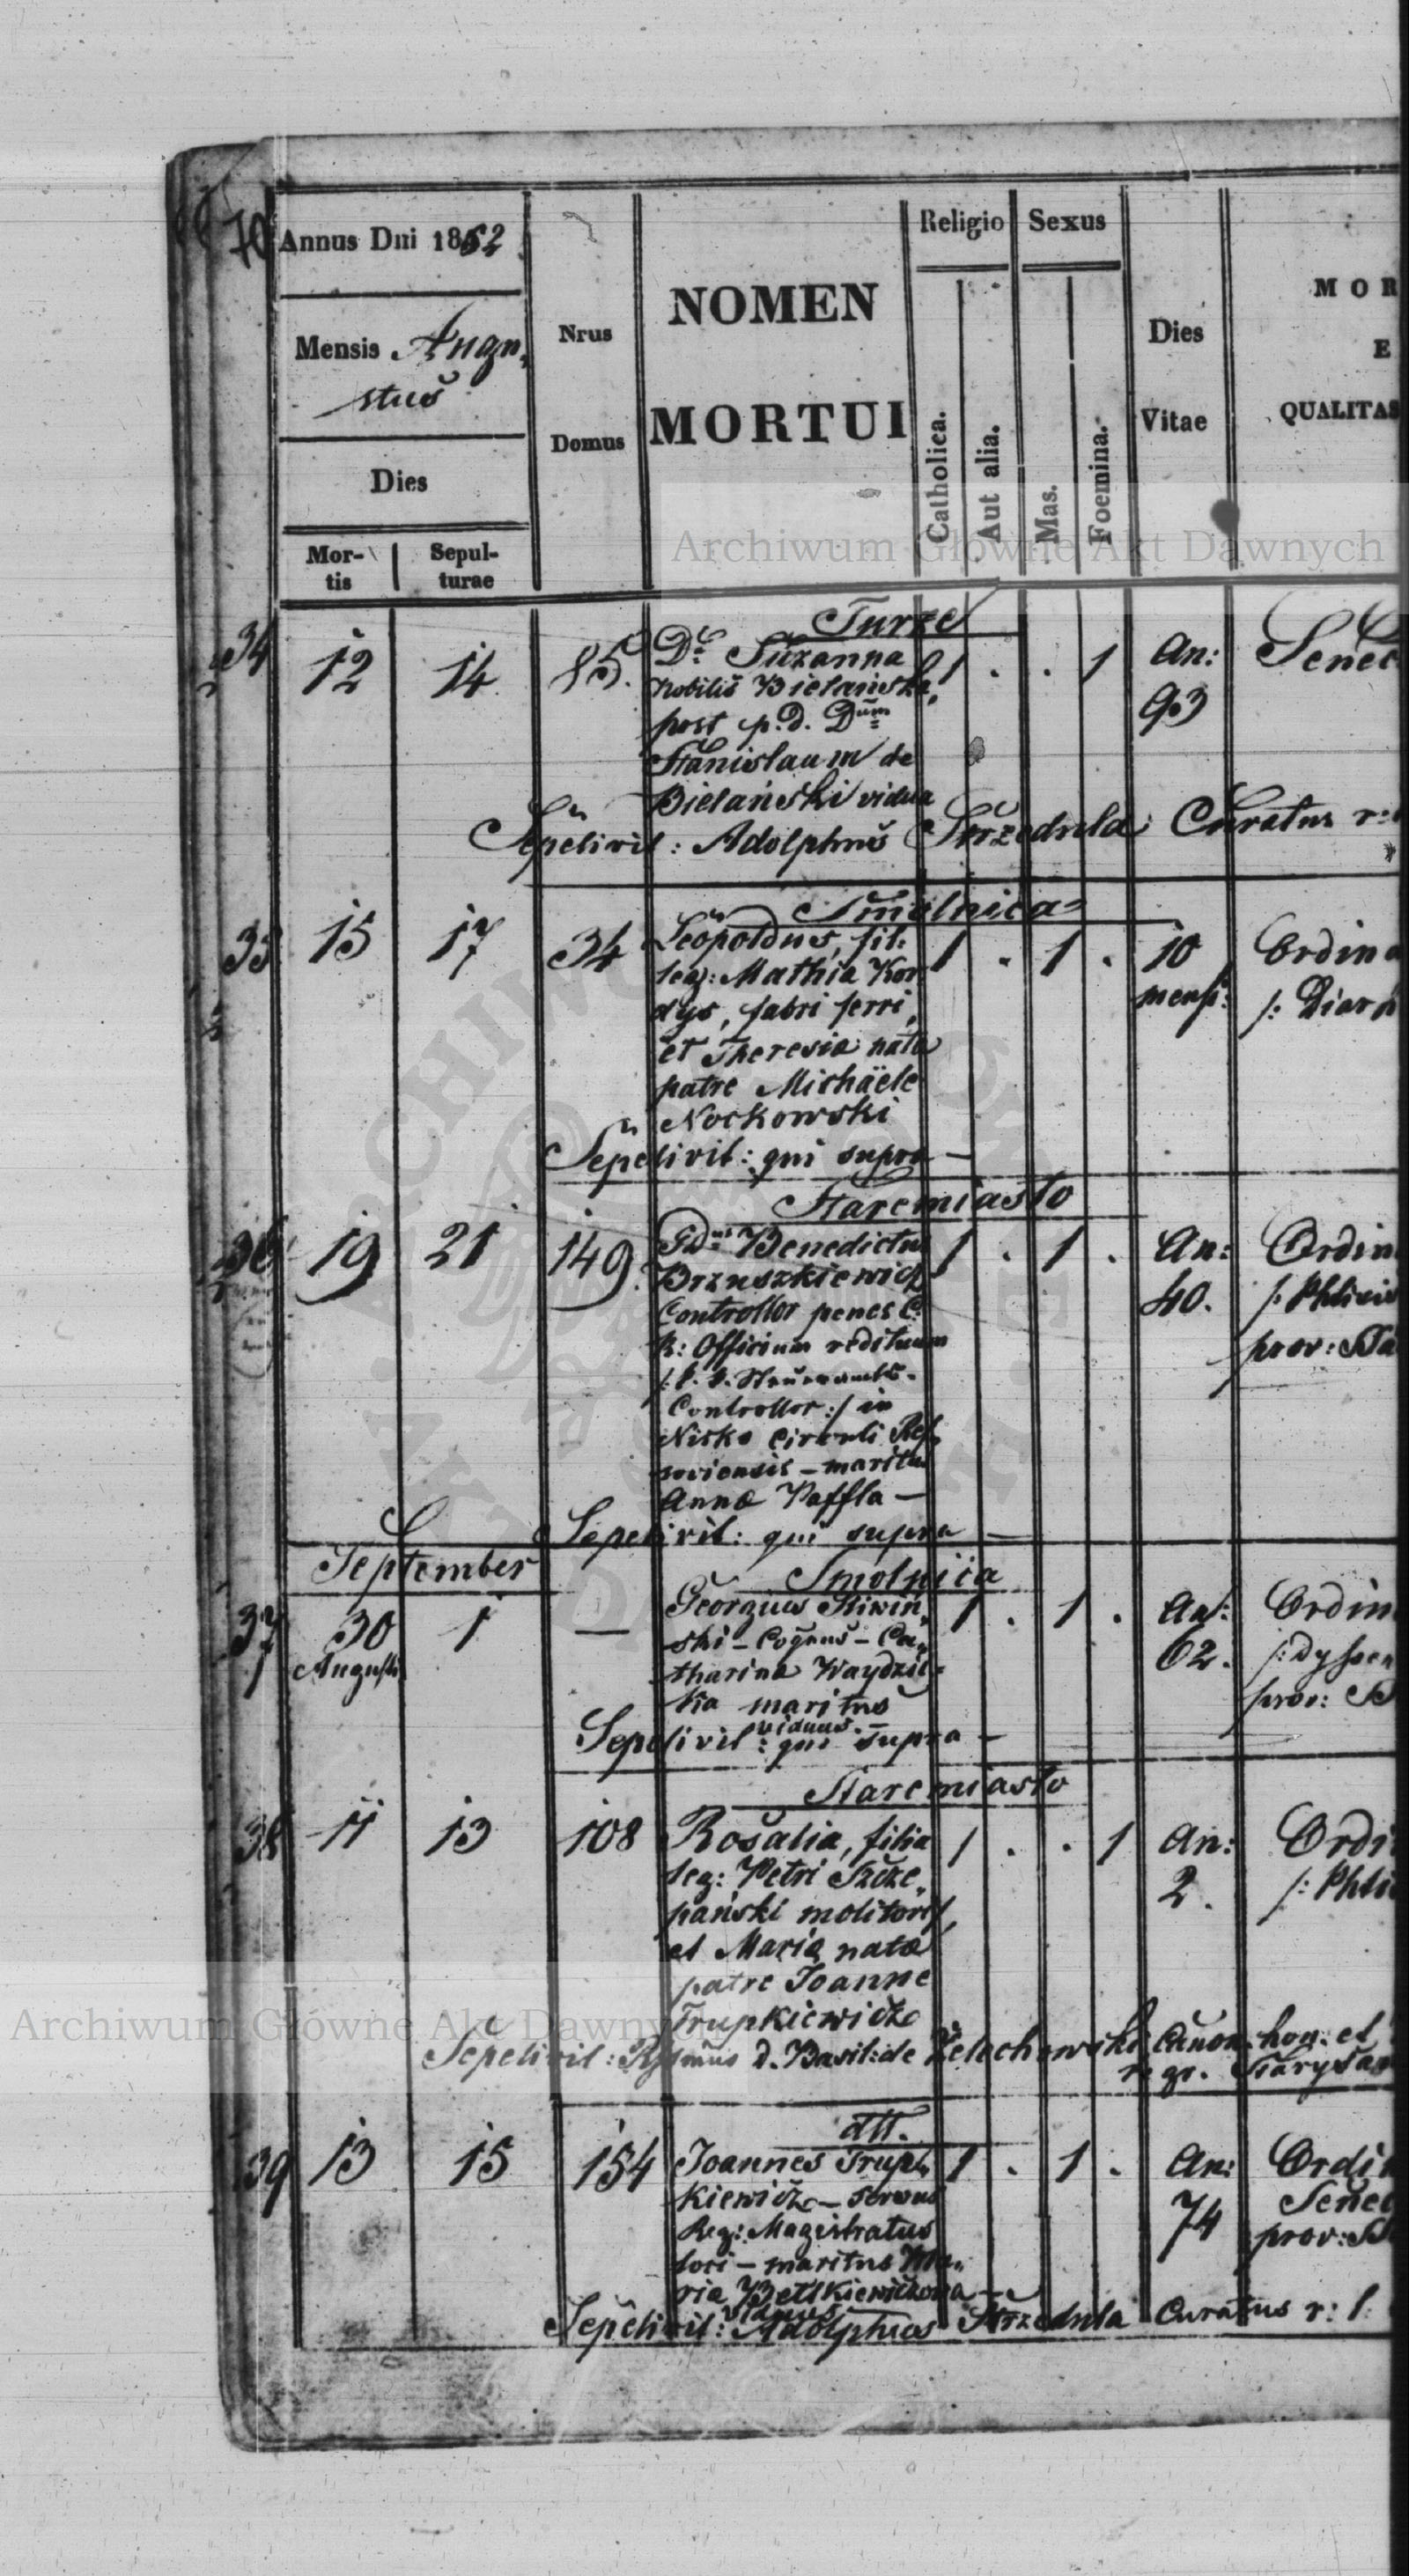 70
Annus Dni 1852
Mensis Augu,
stus
Dies
Mor-
tis
Sepul-
turae
Nrus
Domus
NOMEN
MORTUI
Religio
Catholica.
Aut alia.
Sexus
Mas.
Foemina.
Dies
Vitae
MOR
E
QUALITAS
Archiwum Główne Akt Dawnych
Turze
34 12 14 85. Da Suzanna 1 . . 1 An: Senec
nobilis Bielańska, 93
post p. d. Dum
Stanislaum de
Bielański vidua
Sepelivit: Adolphus Strzedula Curatus r:
Smolnica
35 15 17 34 Leopoldus, fil: 1 . 1 . 10 Ordina
leg: Mathia Kor mens:
dys, fabri ferri, /: Diarr
et Theresia nata
patre Michaele
Nockowski
Sepelivit: qui supra —
Staremiasto
36 19 21 149. Gdus Benedictus 1 . 1 . An: Ordin
Brzuszkiewicz 40.
Controllor penes C.
R: Officium redituum prov:
Controllor :/ in
Nisko Circuli Res,
soviensis – maritus
Anna Paffla —
Sepelivit: qui supra —
September
Smolnica
37 30 1 — Georgius Sliwin, 1 . 1 . An: Ordin
Augusti ski – Coquus – Ca, 62. /: Dyssen
tharina Waydzil- prov:
ka maritus
viduus. —
Sepelivit: qui supra —
Staremiasto
38 11 13 108 Rosalia, filia 1 . . 1 An: Ordi
leg: Petri Szcze, 2.
pański molitoris,
et Maria nata
patre Joanne
Trupkiewicz
Sepelivit: d. Basil: de Żelechowski Canon: hon. et
Archiwum Główne Akt Dawnych
dtt.
39 13 15 154 Joannes Trup, 1 . 1 . An: Ordi
kiewicz – servus 74 Senec
Reg: Magistratus prov:
loci – maritus Ma,
ria Betlkiewiczowa
viduus
Sepelivit: Adolphus Strzedula Curatus r: l: